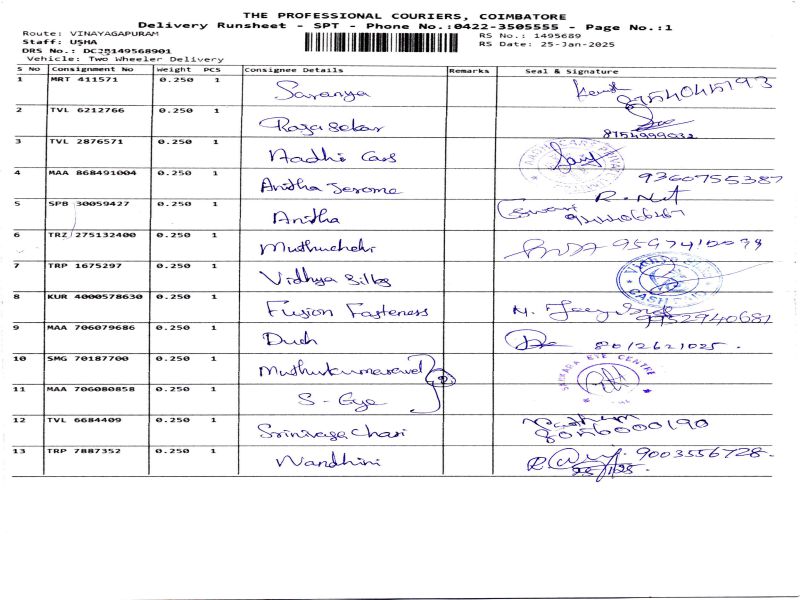 THE PROFESSIONAL COURIERS, COIMBATORE
Delivery Runsheet - SPT - Phone No.:0422-3505555 - Page No.:1
Route: VINAYAGAPURAM RS No.: 1495689
Staff: USHA RS Date: 25-Jan-2025
DRS No.: DCJB149568901
Vehicle: Two Wheeler Delivery
S No Consignment No Weight PCS Consignee Details Remarks Seal & Signature
1 MRT 411571 0.250 1 Saranya
2 TVL 6212766 0.250 1 Rajasekar 8754999032
3 TVL 2876571 0.250 1 Aadhi Cars
4 MAA 868491004 0.250 1 Anitha Jerome 9360755387
5 SPB 30059427 0.250 1 Anitha
6 TRZ 275132400 0.250 1 Muthuchelvi
7 TRP 1675297 0.250 1 Vidhya Silks
8 KUR 4000578630 0.250 1 Fusion Fasteness 9752940681
9 MAA 706079686 0.250 1 Duch 8012621025.
10 SMG 70187700 0.250 1 Muthukumaravel EYE CENTRE
11 MAA 706080858 0.250 1 S-Eye
12 TVL 6684409 0.250 1 Srinivasa Chari 8056000190
13 TRP 7887352 0.250 1 Nandhini 9003556728.
25/1/25.